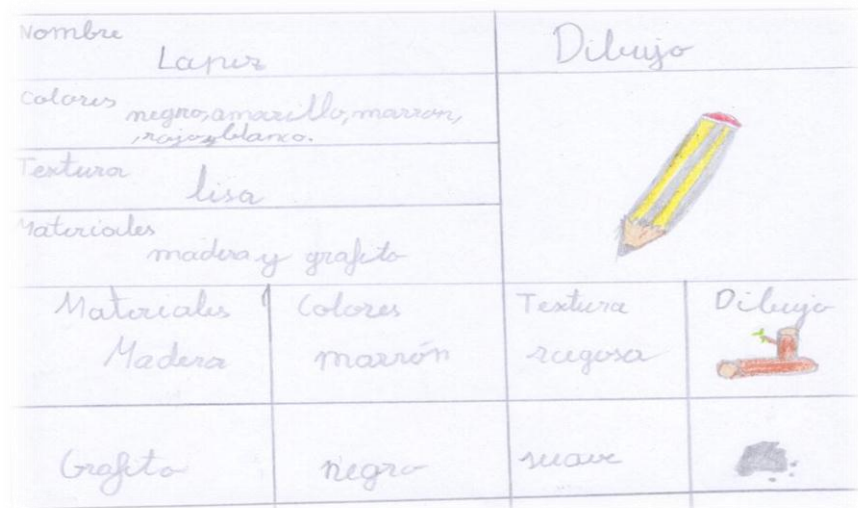 Nombre
Lapiz
Dibujo
Colores
negro, amarillo, marron,
, rojo y blanco.
Textura
lisa
Materiales
madera y grafito
Materiales Colores Textura Dibujo
Madera marrón rugosa
Grafito negro suave